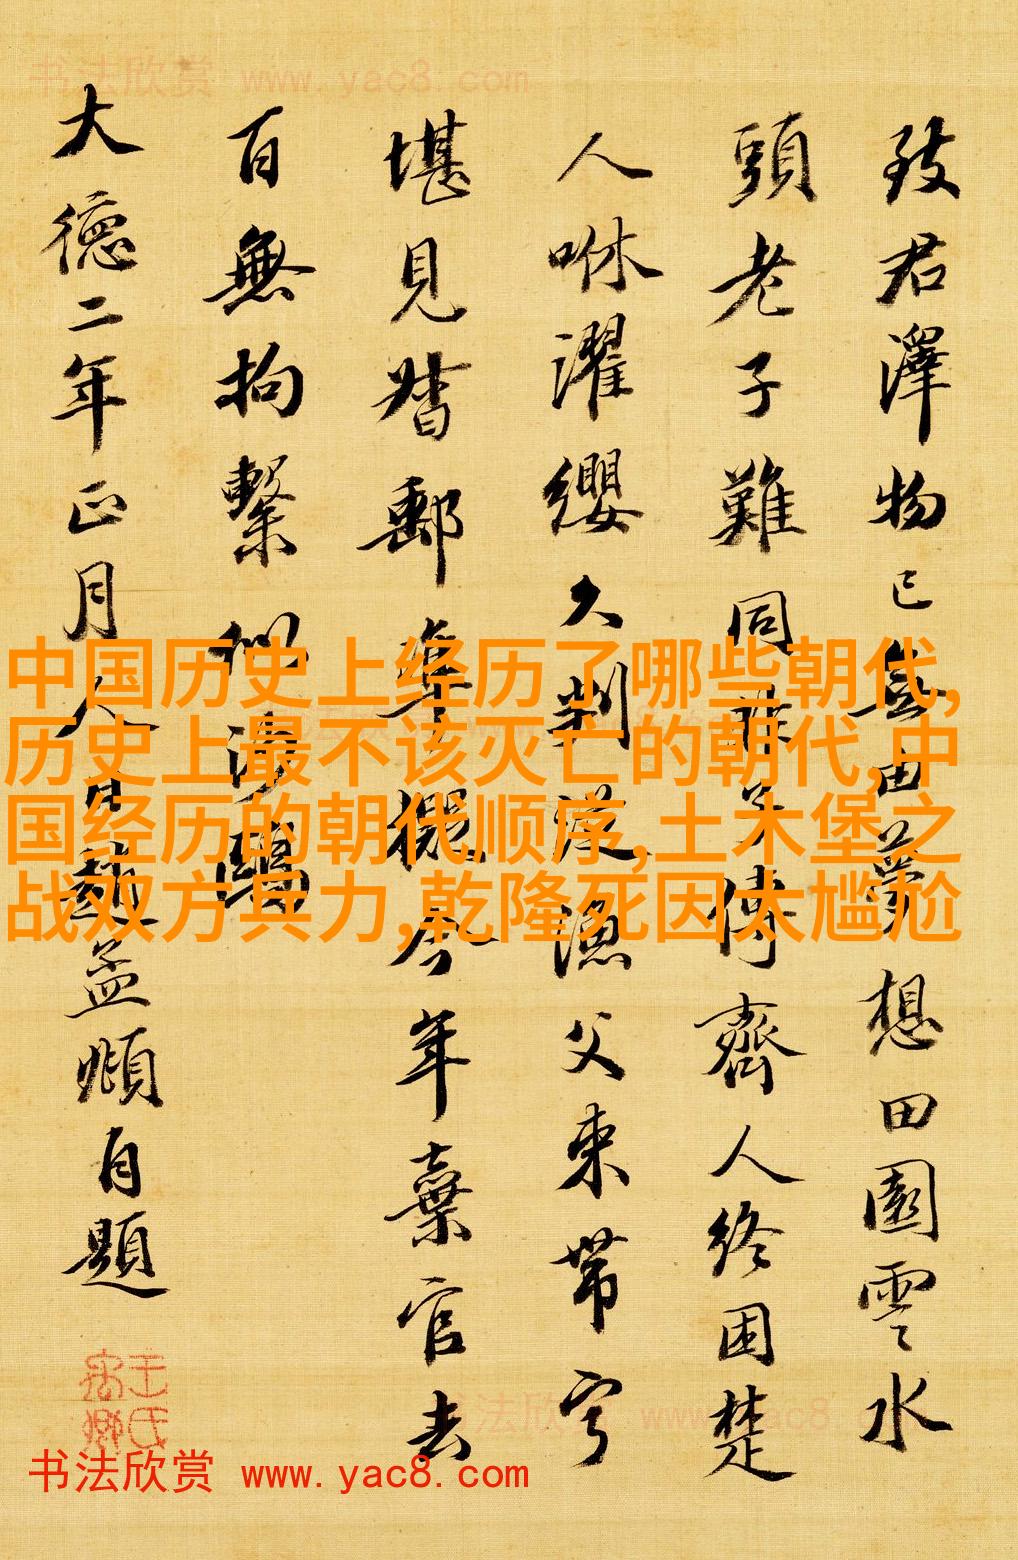 书法欣赏 www.yac8.com
致君澤物已無由夢想田園雲水
頭老子難同非子傳齊人終困楚
人咻濯纓久判從漁父束帶寧
堪見督郵準擬今年棄官去
百無拘繫似沙鷗
大德二年正月人日趙孟頫自題
中国历史上经历了哪些朝代,
历史上最不该灭亡的朝代,中
国经历的朝代顺序,土木堡之
战双方兵力,乾隆死因太尴尬
书法欣赏 www.yac8.com